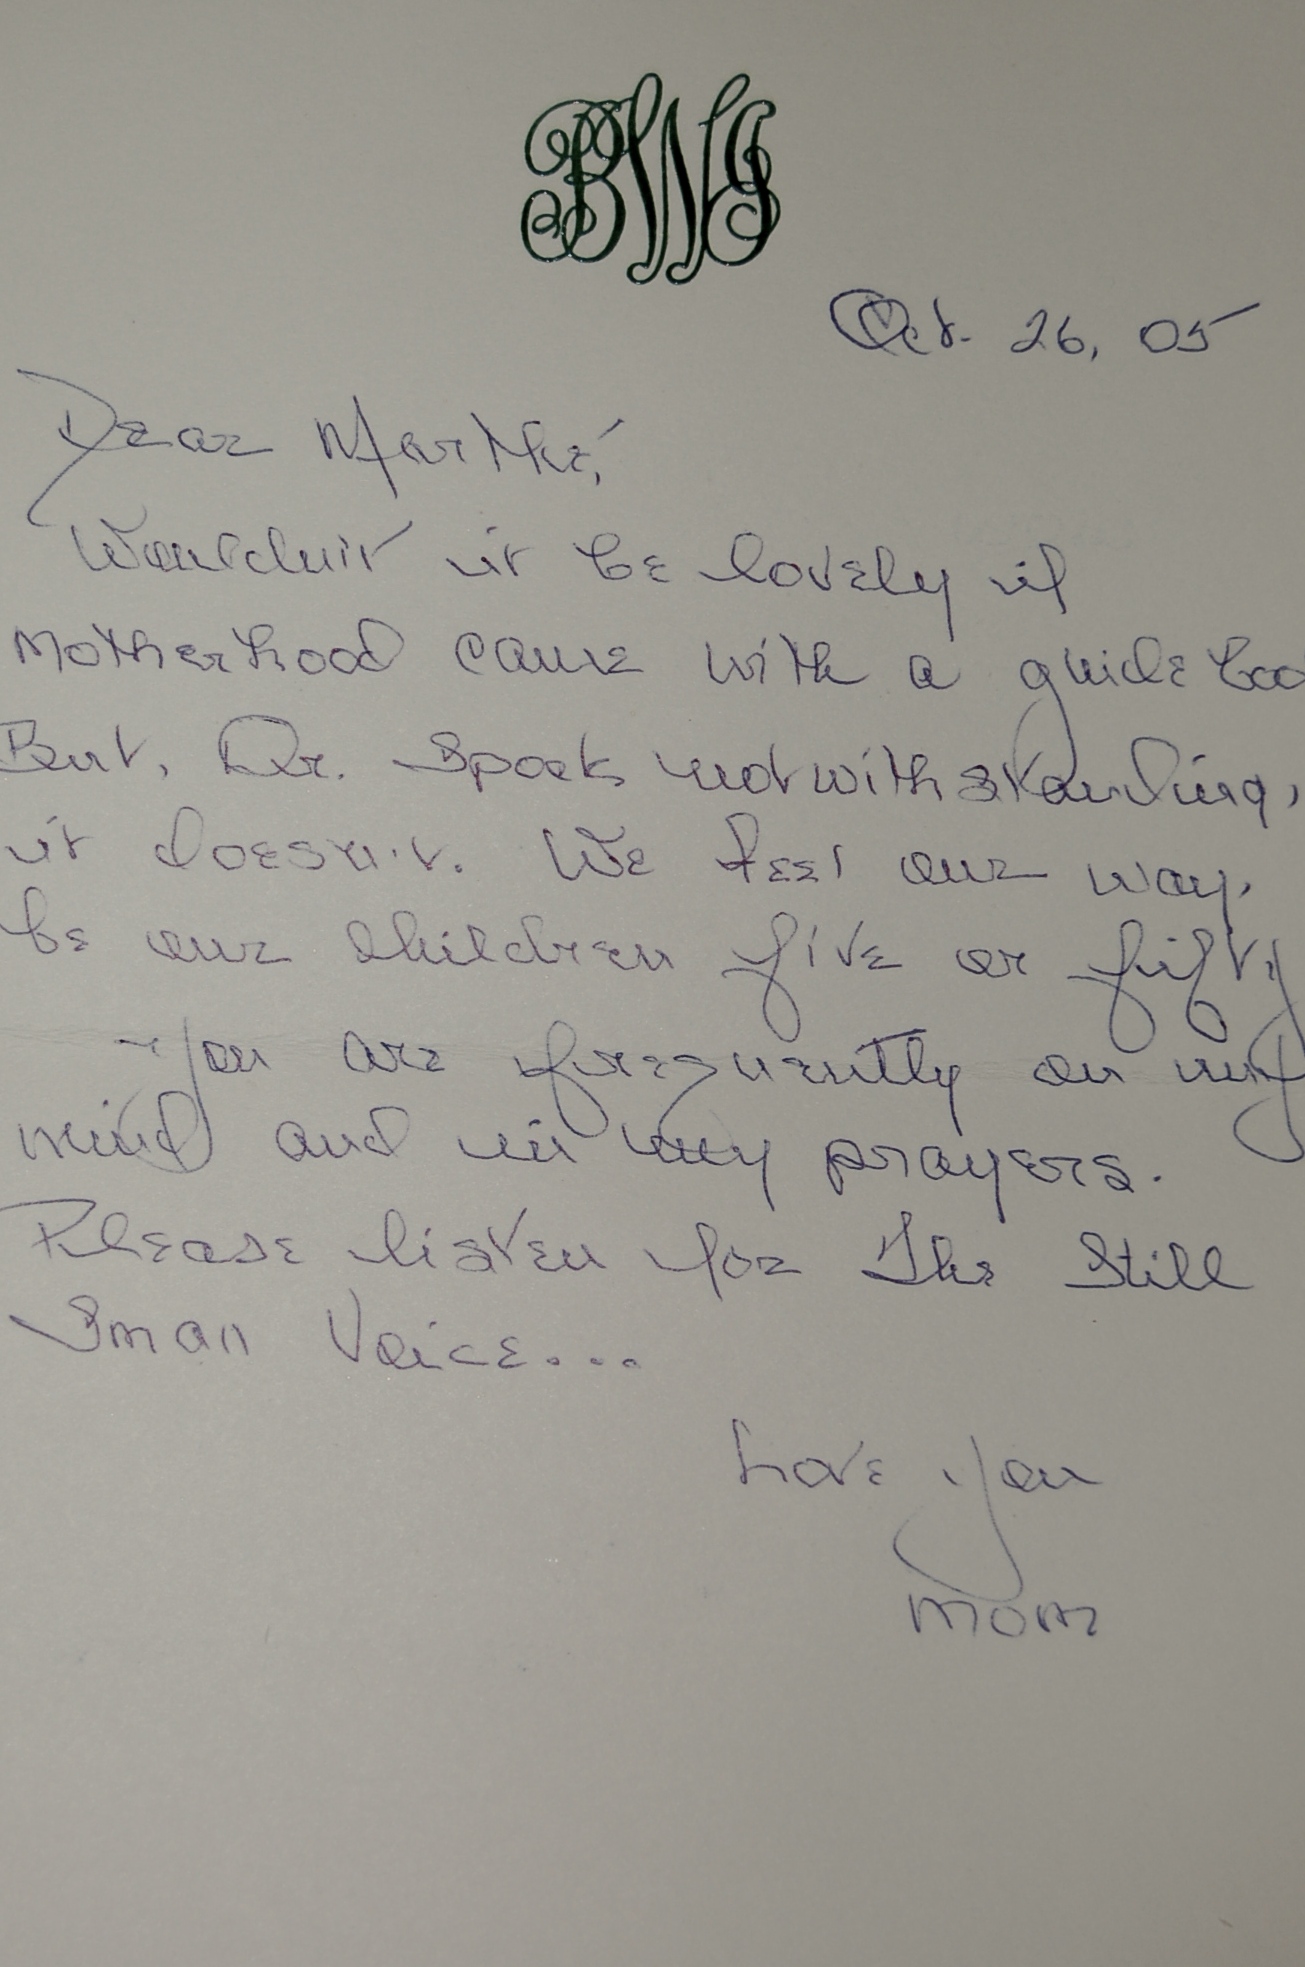 BWG
Oct. 26, 05
Dear Marthé,
Wouldn't it be lovely if
motherhood came with a guide boo
But, Dr. Spock notwithstanding,
it doesn't. We feel our way,
be our children five or fifty
You are frequently on my
mind and in my prayers.
Please listen for The Still
Small Voice...
Love you
Mom